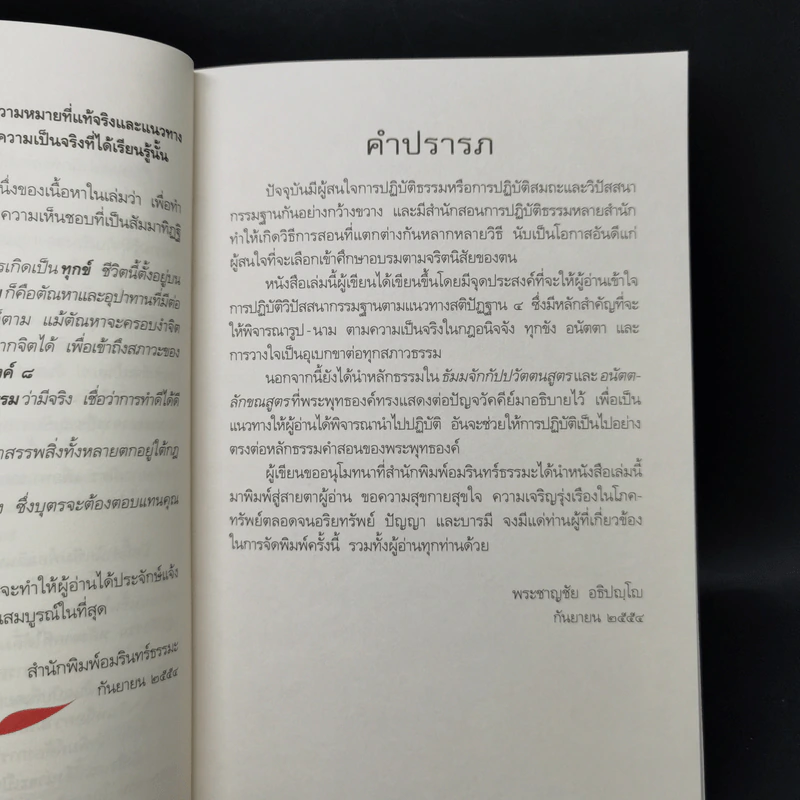 วามหมายที่แท้จริงและแนวทาง
ความเป็นจริงที่ได้เรียนรู้นั้น
นึ่งของเนื้อหาในเล่มว่า เพื่อทำ
ความเห็นชอบที่เป็นสัมมาทิฏฐิ
รเกิดเป็น ทุกข์ ชีวิตนี้ตั้งอยู่บน
ก็คือตัณหาและอุปาทานที่มีต่อ
ก็ตาม แม้ตัณหาจะครอบงำจิต
ากจิตได้ เพื่อเข้าถึงสภาวะของ
งค์ ๘
รม ว่ามีจริง เชื่อว่าการทำดีได้ดี
าสรรพสิ่งทั้งหลายตกอยู่ใต้กฎ
ง ซึ่งบุตรจะต้องตอบแทนคุณ
จะทำให้ผู้อ่านได้ประจักษ์แจ้ง
นสมบูรณ์ในที่สุด
สำนักพิมพ์อมรินทร์ธรรมะ
กันยายน ๒๕๕๔
คำปรารภ
ปัจจุบันมีผู้สนใจการปฏิบัติธรรมหรือการปฏิบัติสมถะและวิปัสสนา
กรรมฐานกันอย่างกว้างขวาง และมีสำนักสอนการปฏิบัติธรรมหลายสำนัก
ทำให้เกิดวิธีการสอนที่แตกต่างกันหลากหลายวิธี นับเป็นโอกาสอันดีแก่
ผู้สนใจที่จะเลือกเข้าศึกษาอบรมตามจริตนิสัยของตน
หนังสือเล่มนี้ผู้เขียนได้เขียนขึ้นโดยมีจุดประสงค์ที่จะให้ผู้อ่านเข้าใจ
การปฏิบัติวิปัสสนากรรมฐานตามแนวทางสติปัฏฐาน ๔ ซึ่งมีหลักสำคัญที่จะ
ให้พิจารณารูป-นาม ตามความเป็นจริงในกฎอนิจจัง ทุกขัง อนัตตา และ
การวางใจเป็นอุเบกขาต่อทุกสภาวธรรม
นอกจากนี้ยังได้นำหลักธรรมใน ธัมมจักกัปปวัตตนสูตร และ อนัตต-
ลักขณสูตร ที่พระพุทธองค์ทรงแสดงต่อปัญจวัคคีย์มาอธิบายไว้ เพื่อเป็น
แนวทางให้ผู้อ่านได้พิจารณานำไปปฏิบัติ อันจะช่วยให้การปฏิบัติเป็นไปอย่าง
ตรงต่อหลักธรรมคำสอนของพระพุทธองค์
ผู้เขียนขออนุโมทนาที่สำนักพิมพ์อมรินทร์ธรรมะได้นำหนังสือเล่มนี้
มาพิมพ์สู่สายตาผู้อ่าน ขอความสุขกายสุขใจ ความเจริญรุ่งเรืองในโภค-
ทรัพย์ตลอดจนอริยทรัพย์ ปัญญา และบารมี จงมีแด่ท่านผู้ที่เกี่ยวข้อง
ในการจัดพิมพ์ครั้งนี้ รวมทั้งผู้อ่านทุกท่านด้วย
พระชาญชัย อธิปญฺโญ
กันยายน ๒๕๕๔